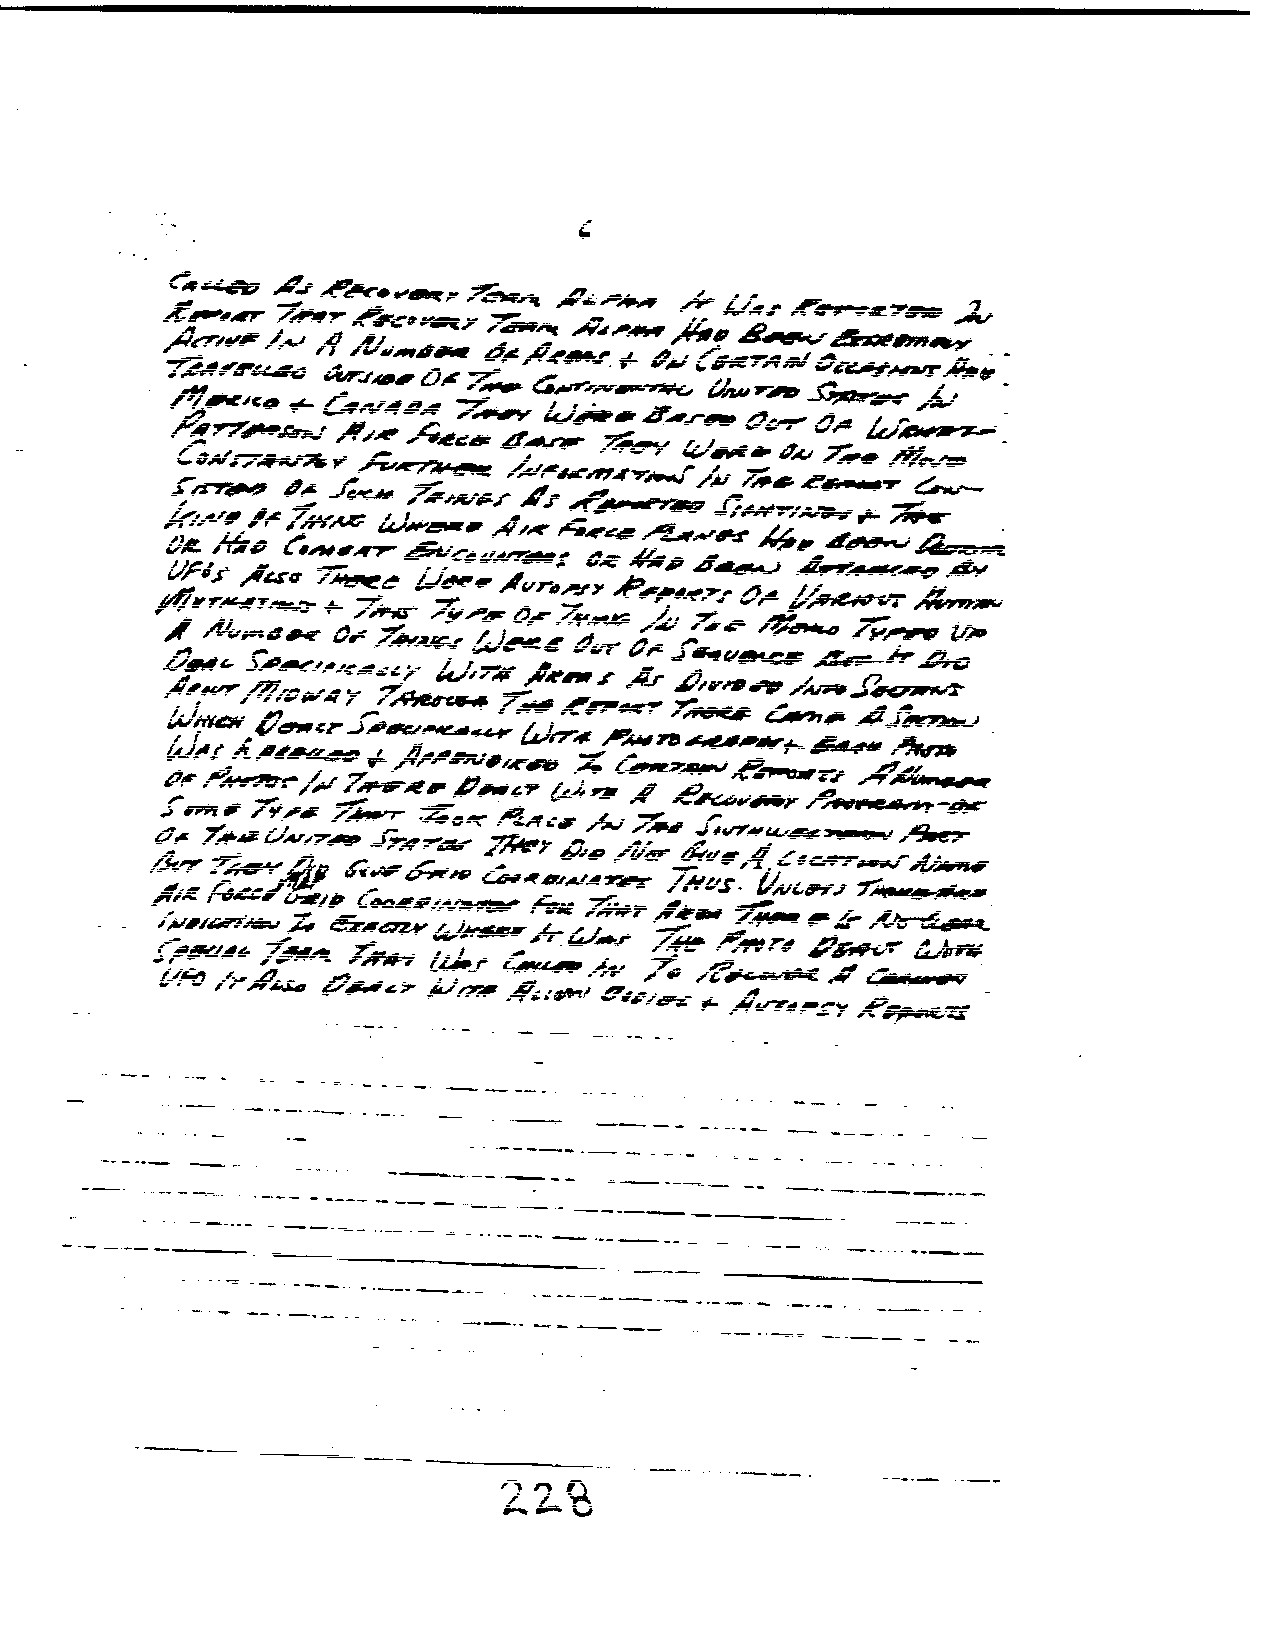 6
Called As Recovery Team Alpha It Was Reported In
Report That Recovery Team Alpha Had Been Extremely
Active In A Number Of Areas + On Certain Occasions Had
Travelled Outside Of The Continental United States In
Mexico + Canada They Were Based Out Of Wright-
Patterson Air Force Base They Were On The Move
Constantly Further Information In The Report Con-
Sisted Of Such Things As Reported Sightings + The
Kind Of Thing Where Air Force Planes Had Been
Or Had Combat Encounters Or Had Been Attacked By
UFOs Also There Were Autopsy Reports Of Various Human
Mutilations + This Type Of Thing In The Memo Typed Up
A Number Of Things Were Out Of Sequence But It Did
Deal Specifically With Areas As Divided Into Sections
About Midway Through The Report There Came A Section
Which Dealt Specifically With Photographs + Each Photo
Was Labeled + Appendixed To Certain Reports A Number
Of Photos In There Dealt With A Recovery Program Of
Some Type That Took Place In The Southwestern Part
Of The United States They Did Not Give A Location Name
But They Did Give Grid Coordinates Thus. Unless There Are
Air Force Grid Coordinates For That Area There Is No Clear
Indication To Exactly Where It Was The Photo Dealt With
Special Team That Was Called In To Recover A Crashed
UFO It Also Dealt With Alien Bodies + Autopsy Reports
228